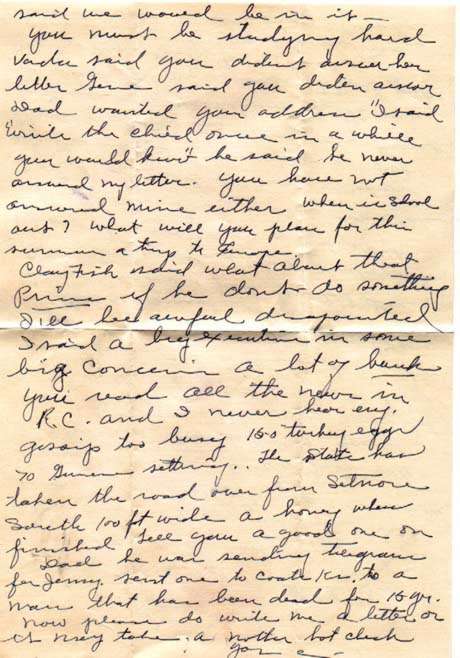 said we would be in it —
you must be studying hard
Vada said you dident answer her
letter Gene said you diden answer
Dad wanted your address "I said
write the child once in a while
you would kind" he said he never
answered my letter. you have not
answered mine either when is School
out? what will you plan for this
summer a trip to Europe.
Clay Fish said what about that
Prince if he dont do something
I'll be awful disapointed
I said a big executive in some
big Concern a lot of bunk
you read all the news in
R.C. and I never hear eny.
gossip too busy 150 turkey eggs
70 Guinea setting.. The State has
taken the road over from Setnore
South 100 ft wide a honey when
finished tell you a good one on
Dad he was sending telegrams
for Jenny. sent one to Coats Ks. to a
man that has been dead for 15 yr.
now please do write me a letter or
it may take a nother hot check